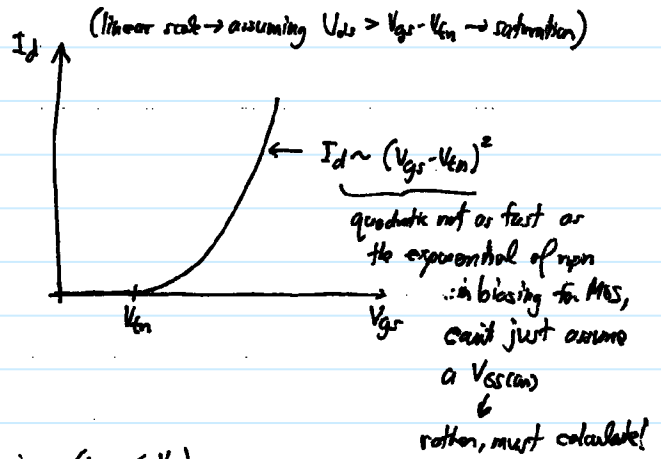 (linear scale → assuming Vds > Vgs-Vtn → saturation)
Id
← Id ~ (Vgs-Vtn)²
quadratic not as fast as
the exponential of npn
∴ in biasing for MOS,
can't just assume
a VGS(on)
↓
rather, must calculate!
Vtn
Vgs